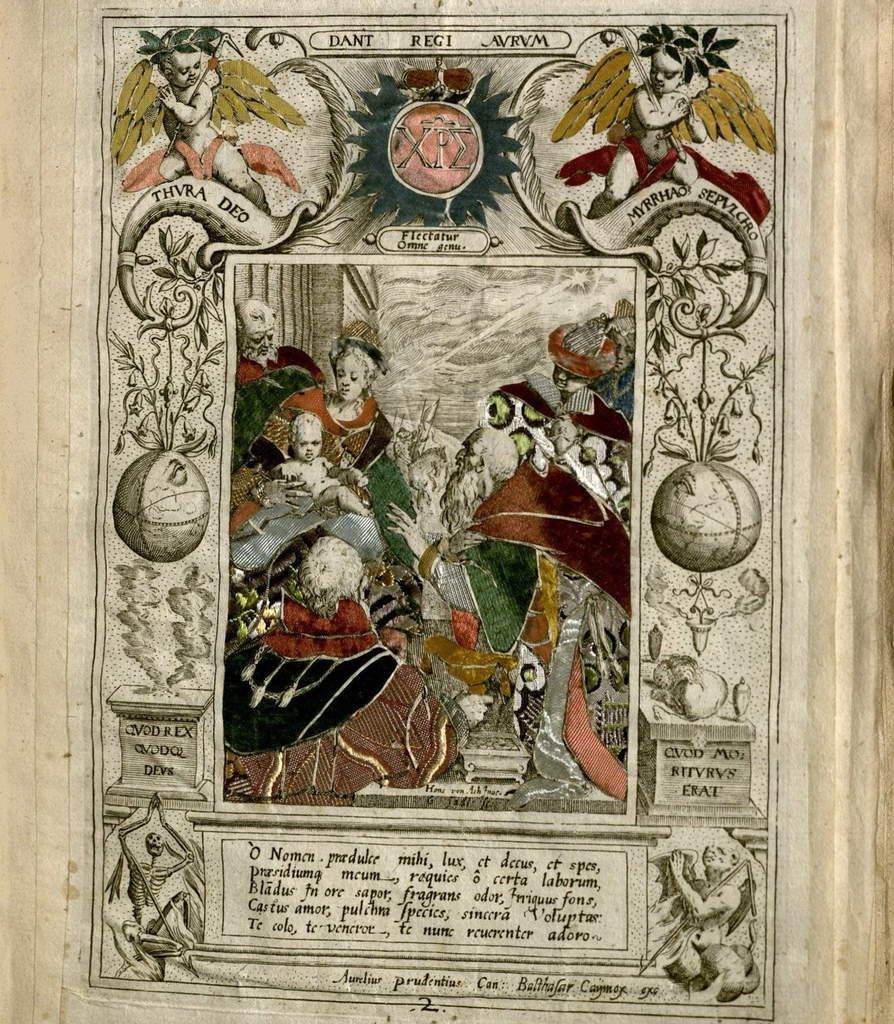 DANT REGI AVRVM
XPΣ
THVRA DEO
MYRRHAQ SEPVLCHRO
Flectatur
Omne genu.
QVOD REX
QVODQ
DEVS
QVOD MO:
RITVRVS
ERAT
Hans von Ach
G. Sadl
O Nomen prædulce mihi, lux, et decus, et spes,
Præsidiumq meum, requies ô certa laborum,
Blādus In ore sapor, fragrans odor, Irriguus fons,
Castus amor, pulchra species, sincerā Voluptas:
Te colo, te veneror, te nunc reuerenter adoro
Aurelius Prudentius Can: Balthasar Caÿmox exc
.2.